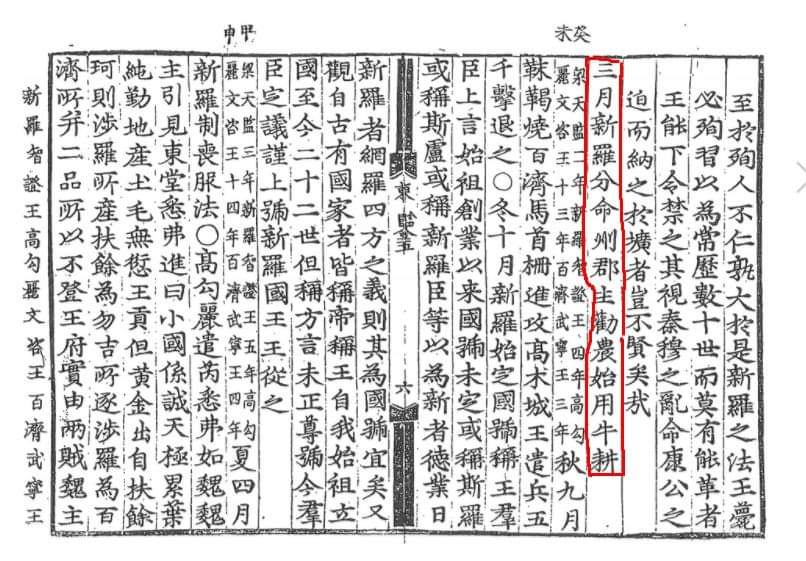 至於殉人不仁孰大於是新羅之法王薨
必殉習以為常歷數十世而莫有能革者
王能下令禁之其視秦穆之亂命康公之
迫而納之於壙者豈不賢矣哉
三月新羅分命州郡主勸農始用牛耕
癸未
梁天監二年新羅智證王四年高勾
麗文咨王十三年百濟武寧王三年
秋九月
靺鞨燒百濟馬首柵進攻高木城王遣兵五
千擊退之○冬十月新羅始定國號稱王羣
臣上言始祖創業以来國號未定或稱斯羅
或稱斯盧或稱新羅臣等以為新者德業日
東
六
新羅者網羅四方之義則其為國號宜矣又
觀自古有國家者皆稱帝稱王自我始祖立
國至今二十二世但稱方言未正尊號今羣
臣定議謹上號新羅國王王從之
甲申
梁天監三年新羅智證王五年高勾
麗文咨王十四年百濟武寧王四年
夏四月
新羅制喪服法○高勾麗遣芮悉弗如魏魏
主引見東堂悉弗進曰小國係誠天極累葉
純勤地產土毛無愆王貢但黃金出自扶餘
珂則涉羅所產扶餘為勿吉所逐涉羅為百
濟所并二品所以不登王府實由兩賊魏主
新羅智證王高勾麗文咨王百濟武寧王